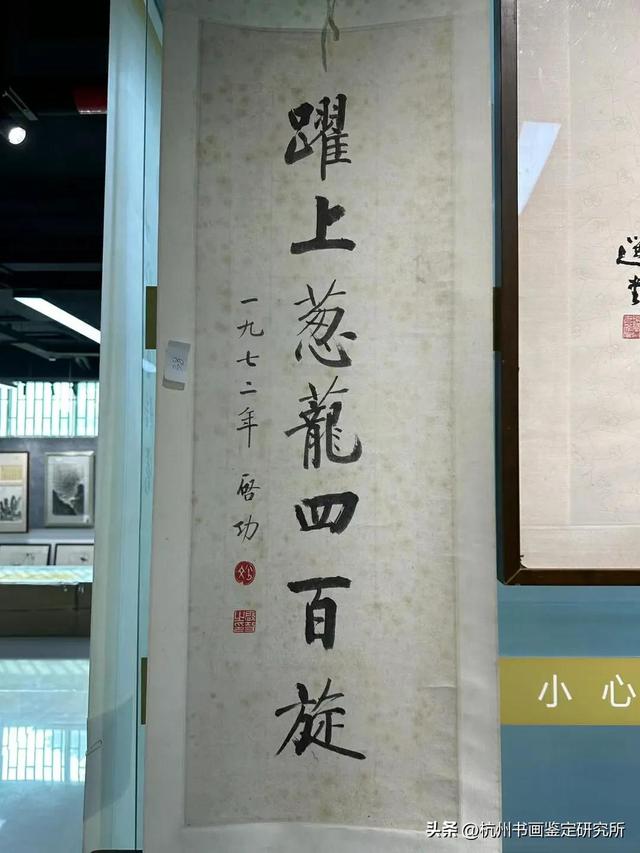 躍上葱蘢四百旋
一九七二年 啓功
小心
头条 @杭州书画鉴定研究所